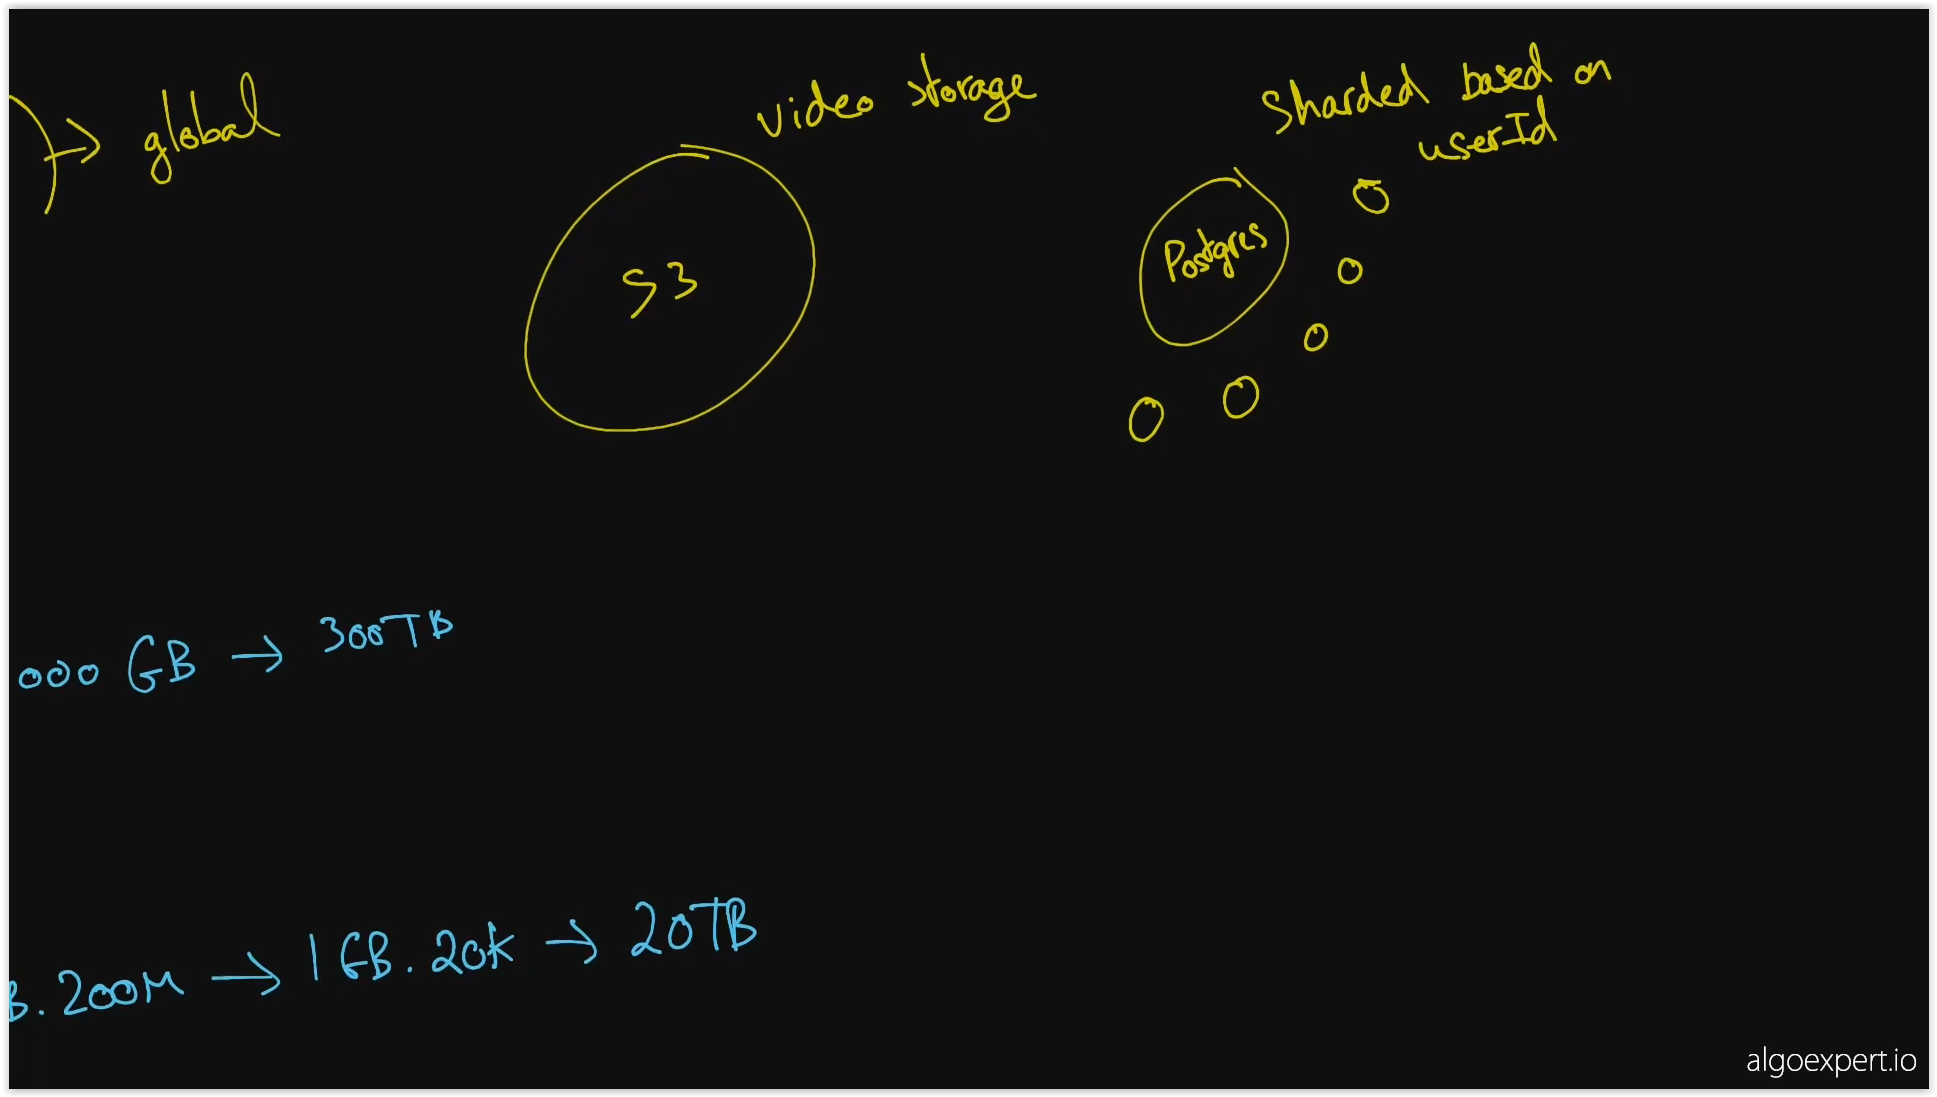 → global
video storage
Sharded based on
userId
S3
Postgres
000 GB → 300TB
B. 200M → 1 GB. 20K → 20TB
algoexpert.io